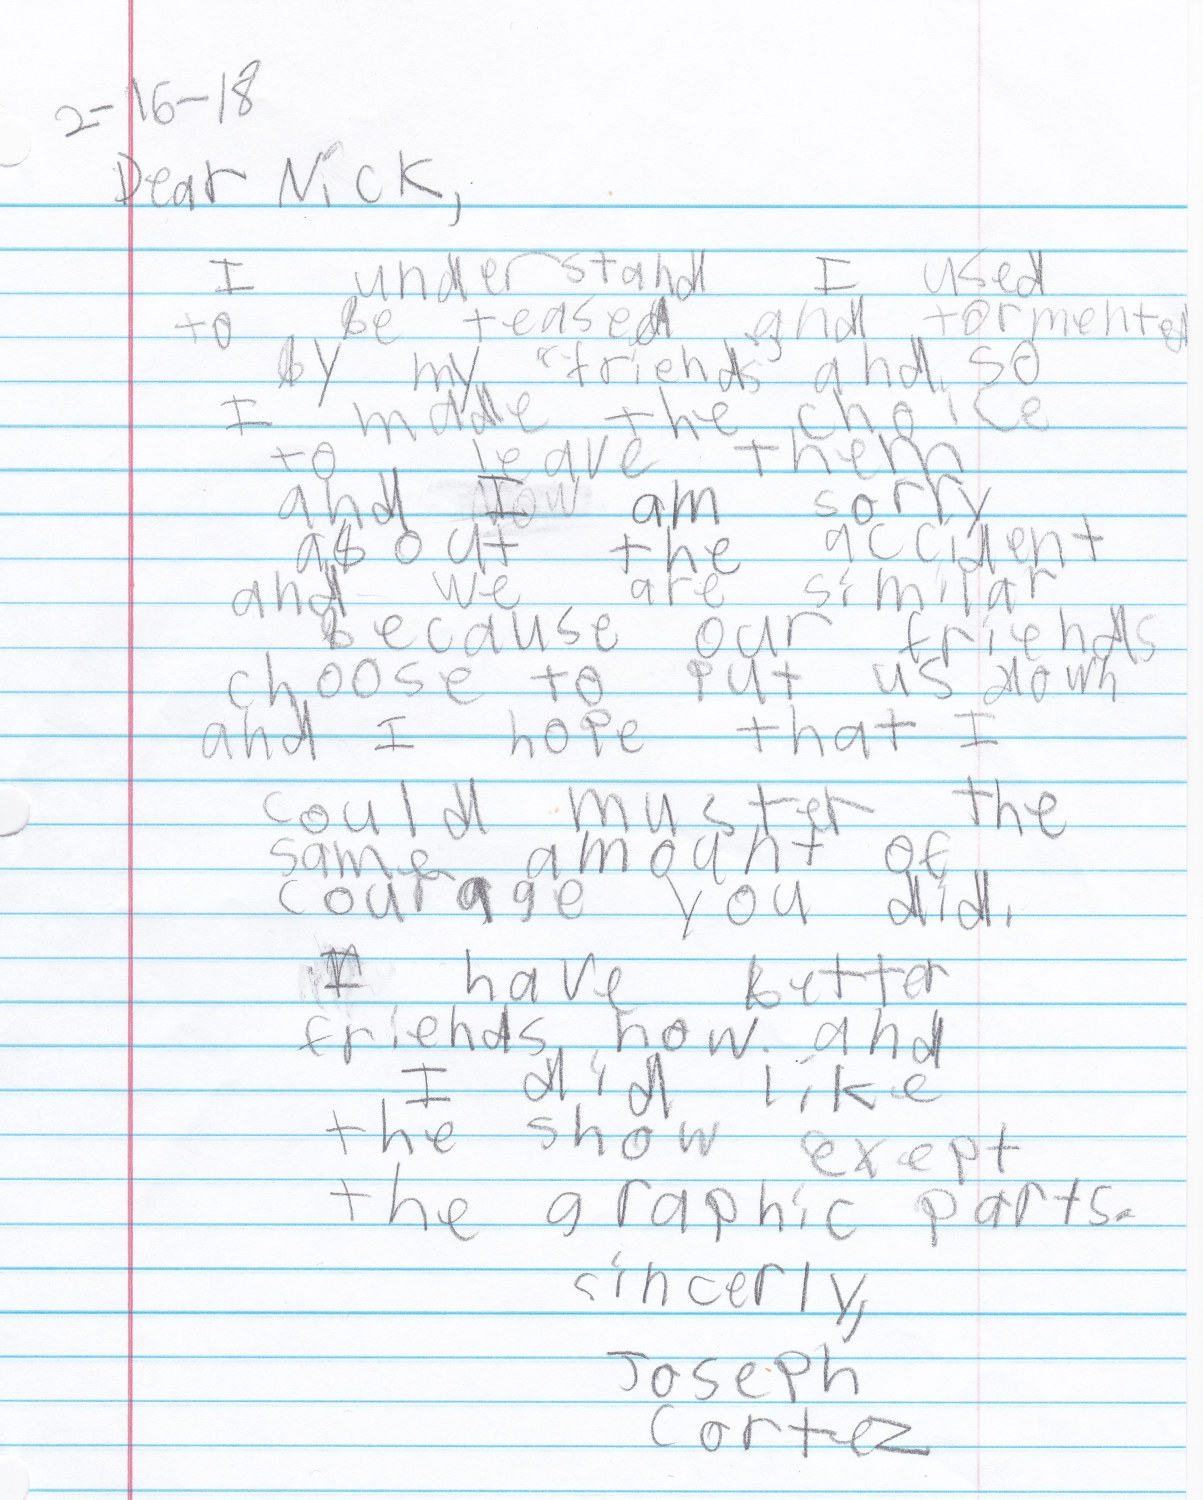 2-16-18
Dear Nick,
I understand I used
to be teased and tormented
by my "friends" and so
I made the choice
to leave them
and I am sorry
about the accident
and we are similar
because our friends
choose to put us down
and I hope that I
could muster the
same amount of
courage you did.
I have better
friends now. and
I did like
the show exept
the graphic parts.
sincerly,
Joseph
Cortez